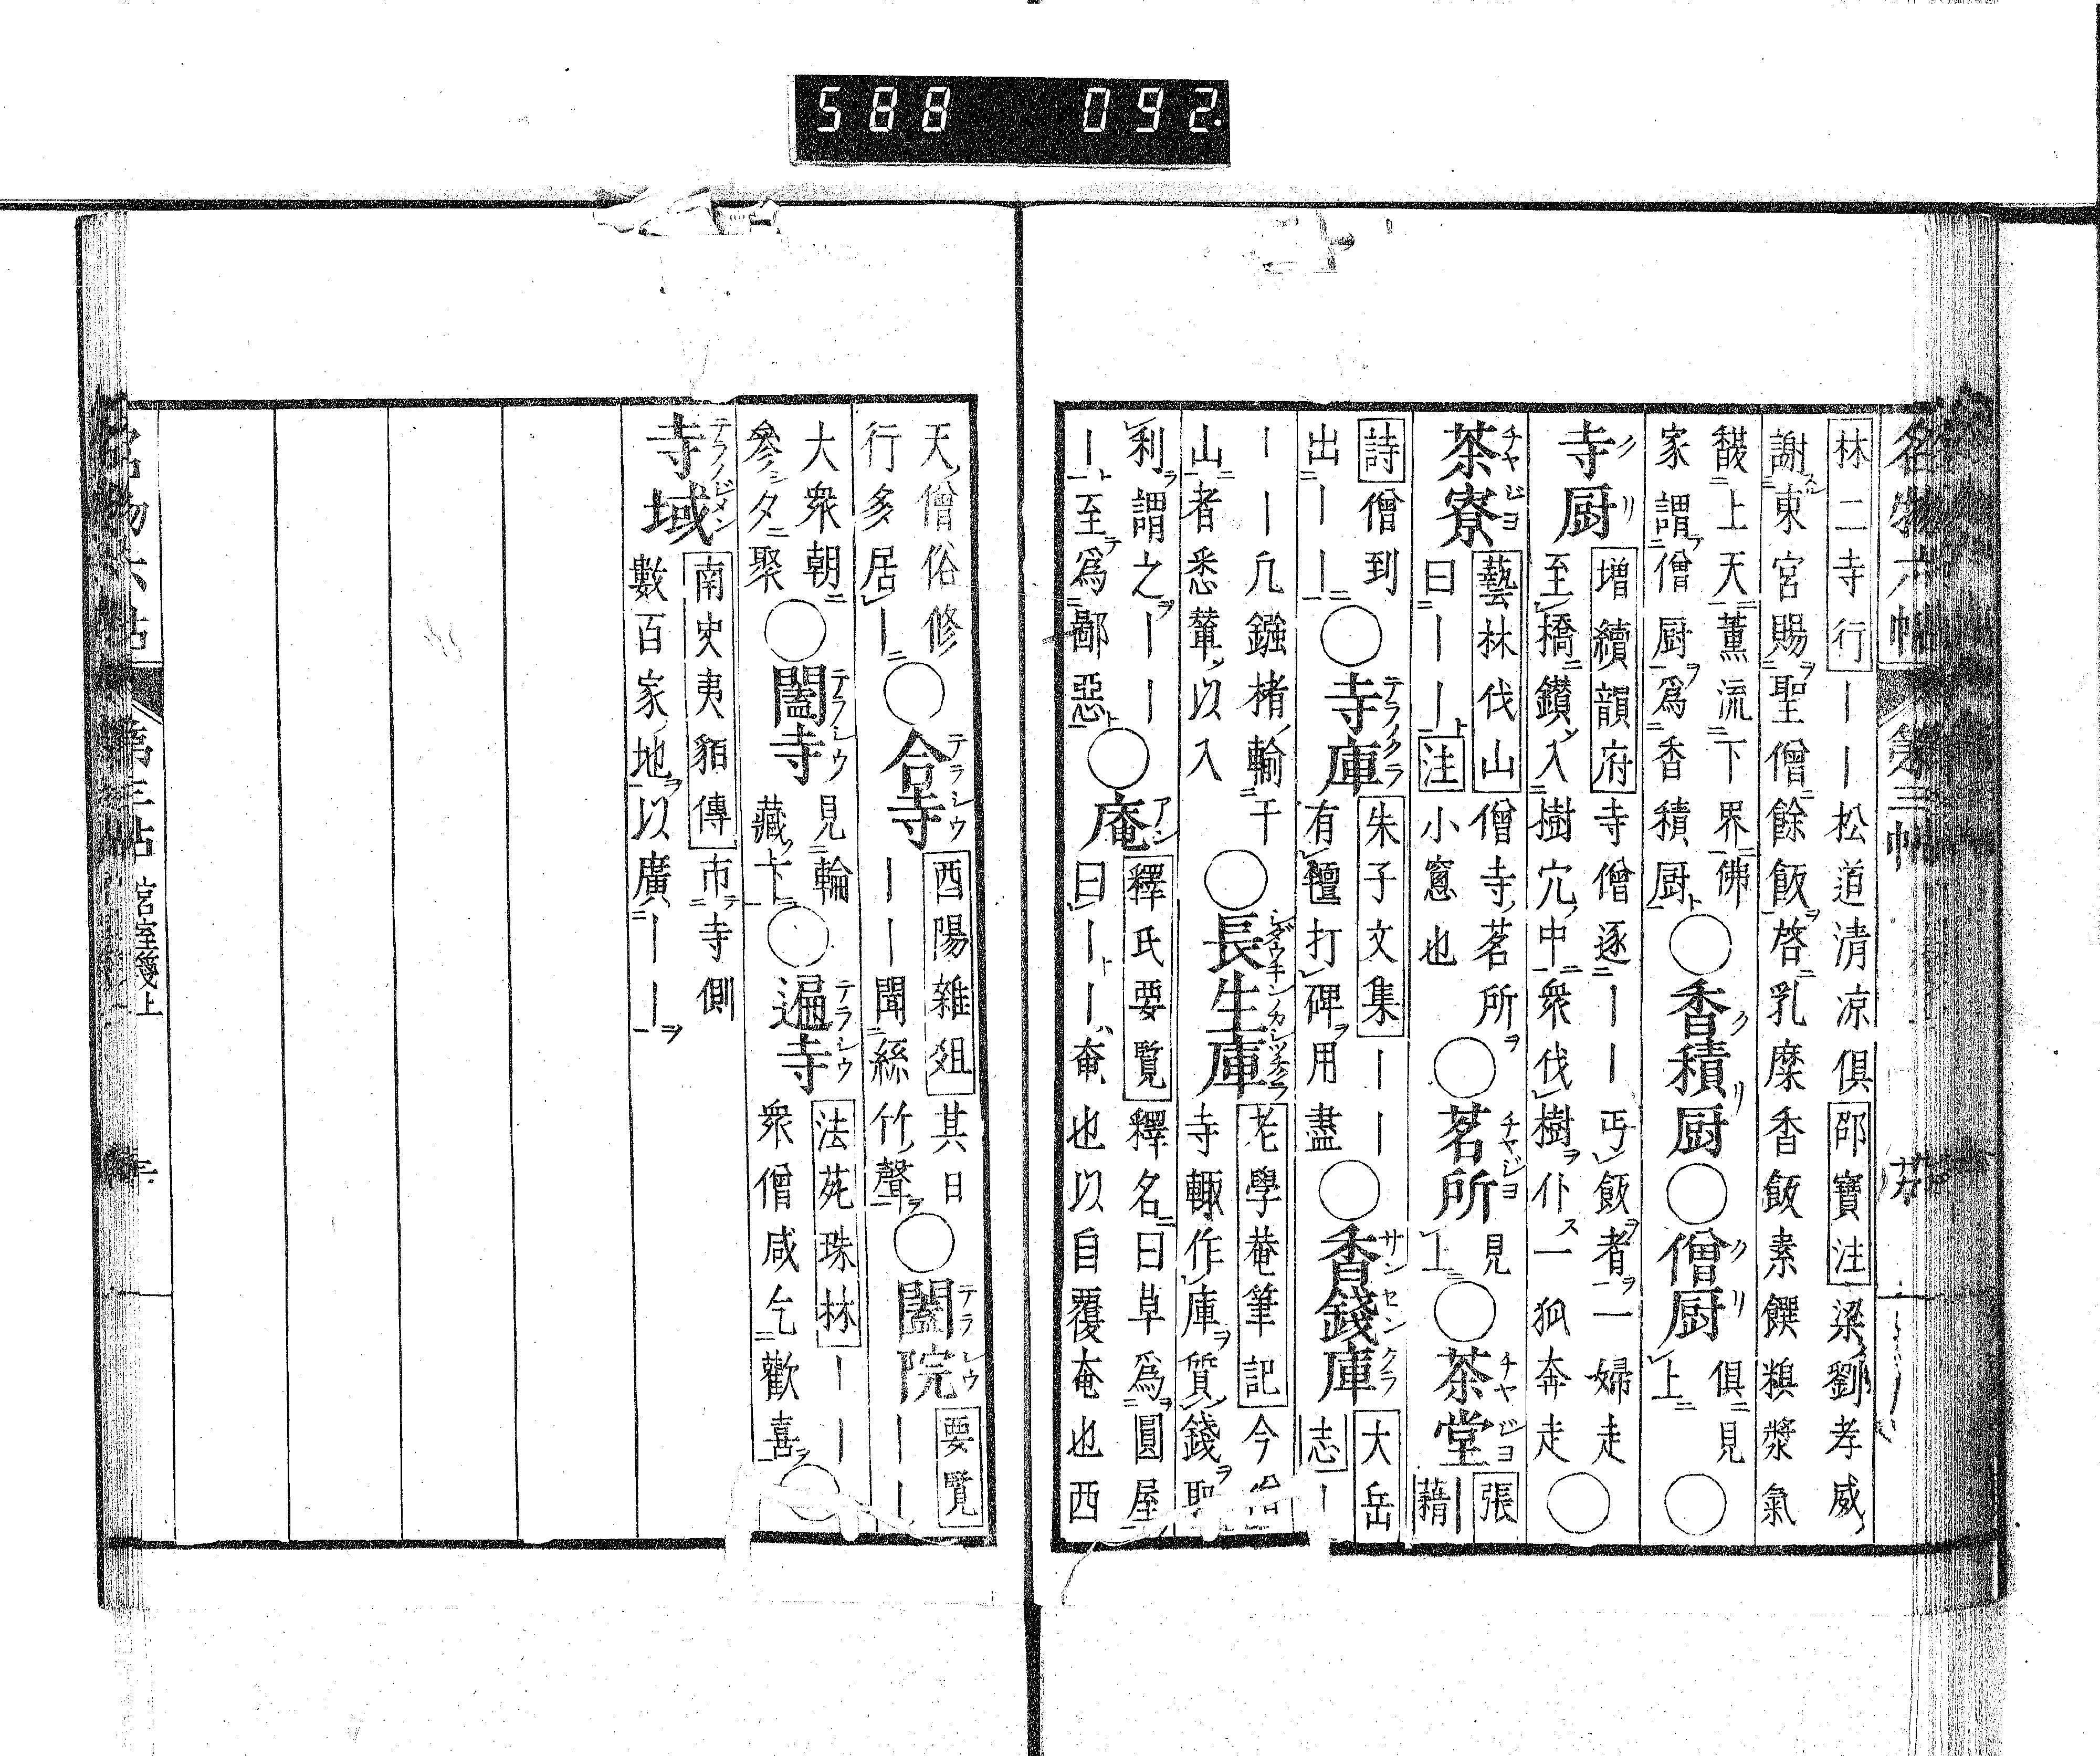 588 092
名物六帖 第三帖
林二寺行｜｜松道清凉俱邵寶注梁劉孝威
謝東宮賜聖僧餘飯啓乳糜香飯素饌糗漿氣
馥上天薫流下界佛
家謂僧厨爲香積厨○香積厨○僧厨俱見上○
寺厨增續韻府寺僧逐｜｜丐飯者一婦走
至橋鑽入樹穴中衆伐樹仆一狐奔走○
茶寮藝林伐山僧寺茗所
曰｜｜注小窻也○茗所見上○茶堂張籍
詩僧到
出｜｜○寺庫朱子文集｜｜
有𤮜打碑用盡○香錢庫大岳志｜
｜｜几鏹楮輸于
山者悉輦以入○長生庫老學菴筆記今
寺輙作庫質錢
利謂之｜｜
｜至爲鄙惡○庵釋氏要覧釋名曰草爲圓屋
曰｜｜奄也以自覆奄也西
天僧俗修
行多居｜○合寺酉陽雜俎其日
｜｜聞絲竹聲○闔院要覧｜｜
大衆朝
參夕聚○闔寺見輪藏卞○遍寺法苑珠林｜｜
衆僧咸乞歡喜○
寺域南史夷貊傳市寺側
數百家地以廣｜｜
名物六帖 第三帖 宮室箋上